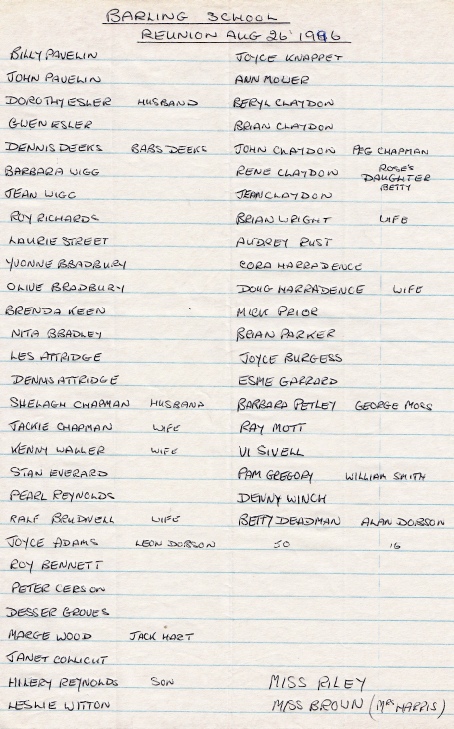 BARLING SCHOOL
REUNION AUG 26 1996
BILLY PAVELIN JOYCE KNAPPET
JOHN PAVELIN ANN MOWER
DOROTHY ESLER HUSBAND BERYL CLAYDON
GWEN ESLER BRIAN CLAYDON
DENNIS DEEKS BABS DEEKS JOHN CLAYDON PEG CHAPMAN
BARBARA WIGG RENE CLAYDON ROSE'S DAUGHTER BETTY
JEAN WIGG JEAN CLAYDON
ROY RICHARDS BRIAN WRIGHT WIFE
LAURIE STREET AUDREY RUST
YVONNE BRADBURY CORA HARRADENCE
OLIVE BRADBURY DOUG HARRADENCE WIFE
BRENDA KEEN MICK PRIOR
NITA BRADLEY BRIAN PARKER
LES ATTRIDGE JOYCE BURGESS
DENNIS ATTRIDGE ESME GARRARD
SHELAGH CHAPMAN HUSBAND BARBARA PETLEY GEORGE MOSS
JACKIE CHAPMAN WIFE RAY MOTT
KENNY WALLER WIFE VI SIVELL
STAN EVERARD PAM GREGORY WILLIAM SMITH
PEARL REYNOLDS DENNY WINCH
RALF BRUDWELL WIFE BETTY DEADMAN ALAN DOBSON
JOYCE ADAMS LEON DOBSON 50 16
ROY BENNETT
PETER CERSON
DESSER GROVES
MARGE WOOD JACK HART
JANET COLLICUT
HILERY REYNOLDS SON MISS RILEY
LESLIE WITTON MISS BROWN (MRS HARRIS)